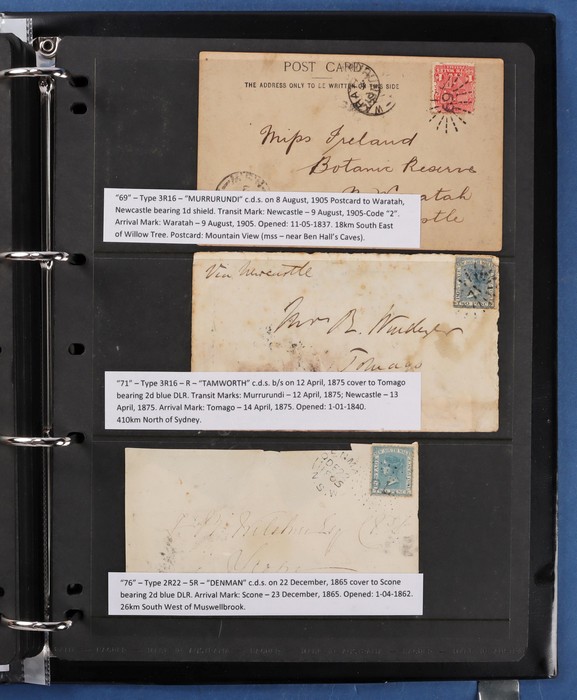 POST CARD
THE ADDRESS ONLY TO BE WRITTEN ON THIS SIDE
Miss Ireland
Botanic Reserve
Waratah
"69" – Type 3R16 – "MURRURUNDI" c.d.s. on 8 August, 1905 Postcard to Waratah,
Newcastle bearing 1d shield. Transit Mark: Newcastle – 9 August, 1905-Code "2".
Arrival Mark: Waratah – 9 August, 1905. Opened: 11-05-1837. 18km South East
of Willow Tree. Postcard: Mountain View (mss – near Ben Hall's Caves).
Via Newcastle
Tomago
"71" – Type 3R16 – R – "TAMWORTH" c.d.s. b/s on 12 April, 1875 cover to Tomago
bearing 2d blue DLR. Transit Marks: Murrurundi – 12 April, 1875; Newcastle – 13
April, 1875. Arrival Mark: Tomago – 14 April, 1875. Opened: 1-01-1840.
410km North of Sydney.
"76" – Type 2R22 – 5R – "DENMAN" c.d.s. on 22 December, 1865 cover to Scone
bearing 2d blue DLR. Arrival Mark: Scone – 23 December, 1865. Opened: 1-04-1862.
26km South West of Muswellbrook.